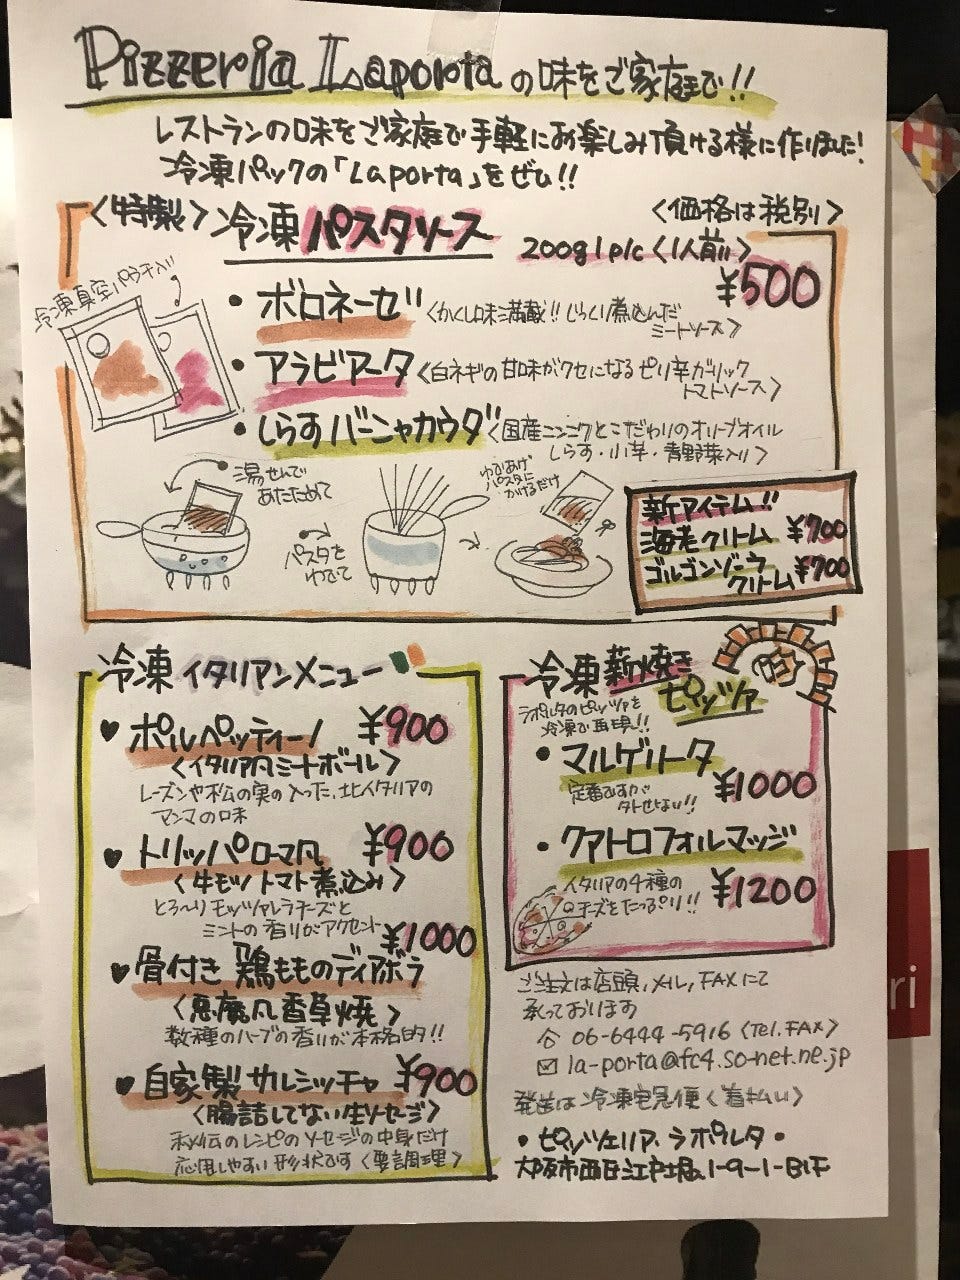 Pizzeria Laportaの味をご家庭で!!
レストランの味をご家庭で手軽にお楽しみ頂ける様に作りました!
冷凍パックの「Laporta」をぜひ!!
〈特製〉冷凍パスタソース
〈価格は税別〉
200g 1p/c〈1人前〉
¥500
冷凍真空パウチ入り
・ボロネーゼ〈かくし味満蔵!!じっくり煮込んだ
ミートソース〉
・アラビアータ〈白ネギの甘味がクセになるピリ辛ガーリック
トマトソース〉
・しらすバーニャカウダ〈国産ニンニクとこだわりのオリーブオイル
しらす・小芋・青野菜入り〉
湯せんで
あたためて
パスタを
ゆでて
ゆであげ
パスタに
かけるだけ
新アイテム!!
海老クリーム ¥700
ゴルゴンゾーラ
クリーム ¥700
冷凍イタリアンメニュー
♥ポルペッティーノ ¥900
〈イタリア風ミートボール〉
レーズンや松の実の入った、北イタリアの
マンマの味
♥トリッパローマ風 ¥900
〈牛モツトマト煮込み〉
とろ〜りモッツァレラチーズと
ミントの香りがアクセント
¥1000
♥骨付き鶏もものディアボラ
〈悪魔風香草焼〉
数種のハーブの香りが本格的!!
♥自家製サルシッチャ ¥900
〈腸詰してない生ソーセージ〉
秘伝のレシピのソーセージの中身だけ
応用しやすい形状です〈要調理〉
冷凍薪焼き
ピッツァ
ラポルタのピッツァを
冷凍で再現!!
・マルゲリータ
定番ですが
ハズせない!! ¥1000
・クアトロフォルマッジ
イタリアの4種の
チーズをたっぷり!! ¥1200
ご注文は店頭,メール,FAXにて
承っております
06-6444-5916〈Tel.FAX〉
la-porta@fc4.so-net.ne.jp
発送は冷凍宅急便〈着払い〉
・ピッツェリア・ラポルタ・
大阪市西区江戸堀1-9-1-B1F
ri